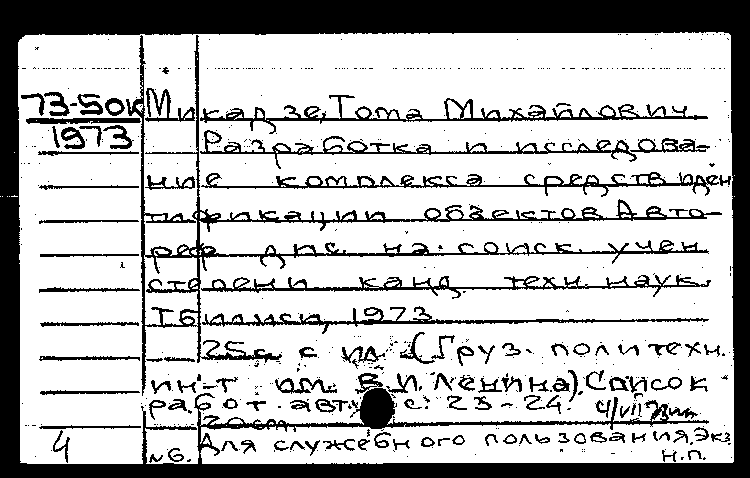 73-50к Микадзе, Тома Михайлович.
1973 Разработка и исследова-
ние комплекса средств иден
тификации объектов Авто-
реф дис. на. соиск. учен
степени канд техн. наук.
Тбилиси, 1973
25с с ил (Груз. политехн.
ин-т им. В.И. Ленина). Список
работ авт. с: 23-24.
20см.
4 №6. Для служебного пользования, Экз
н.п.